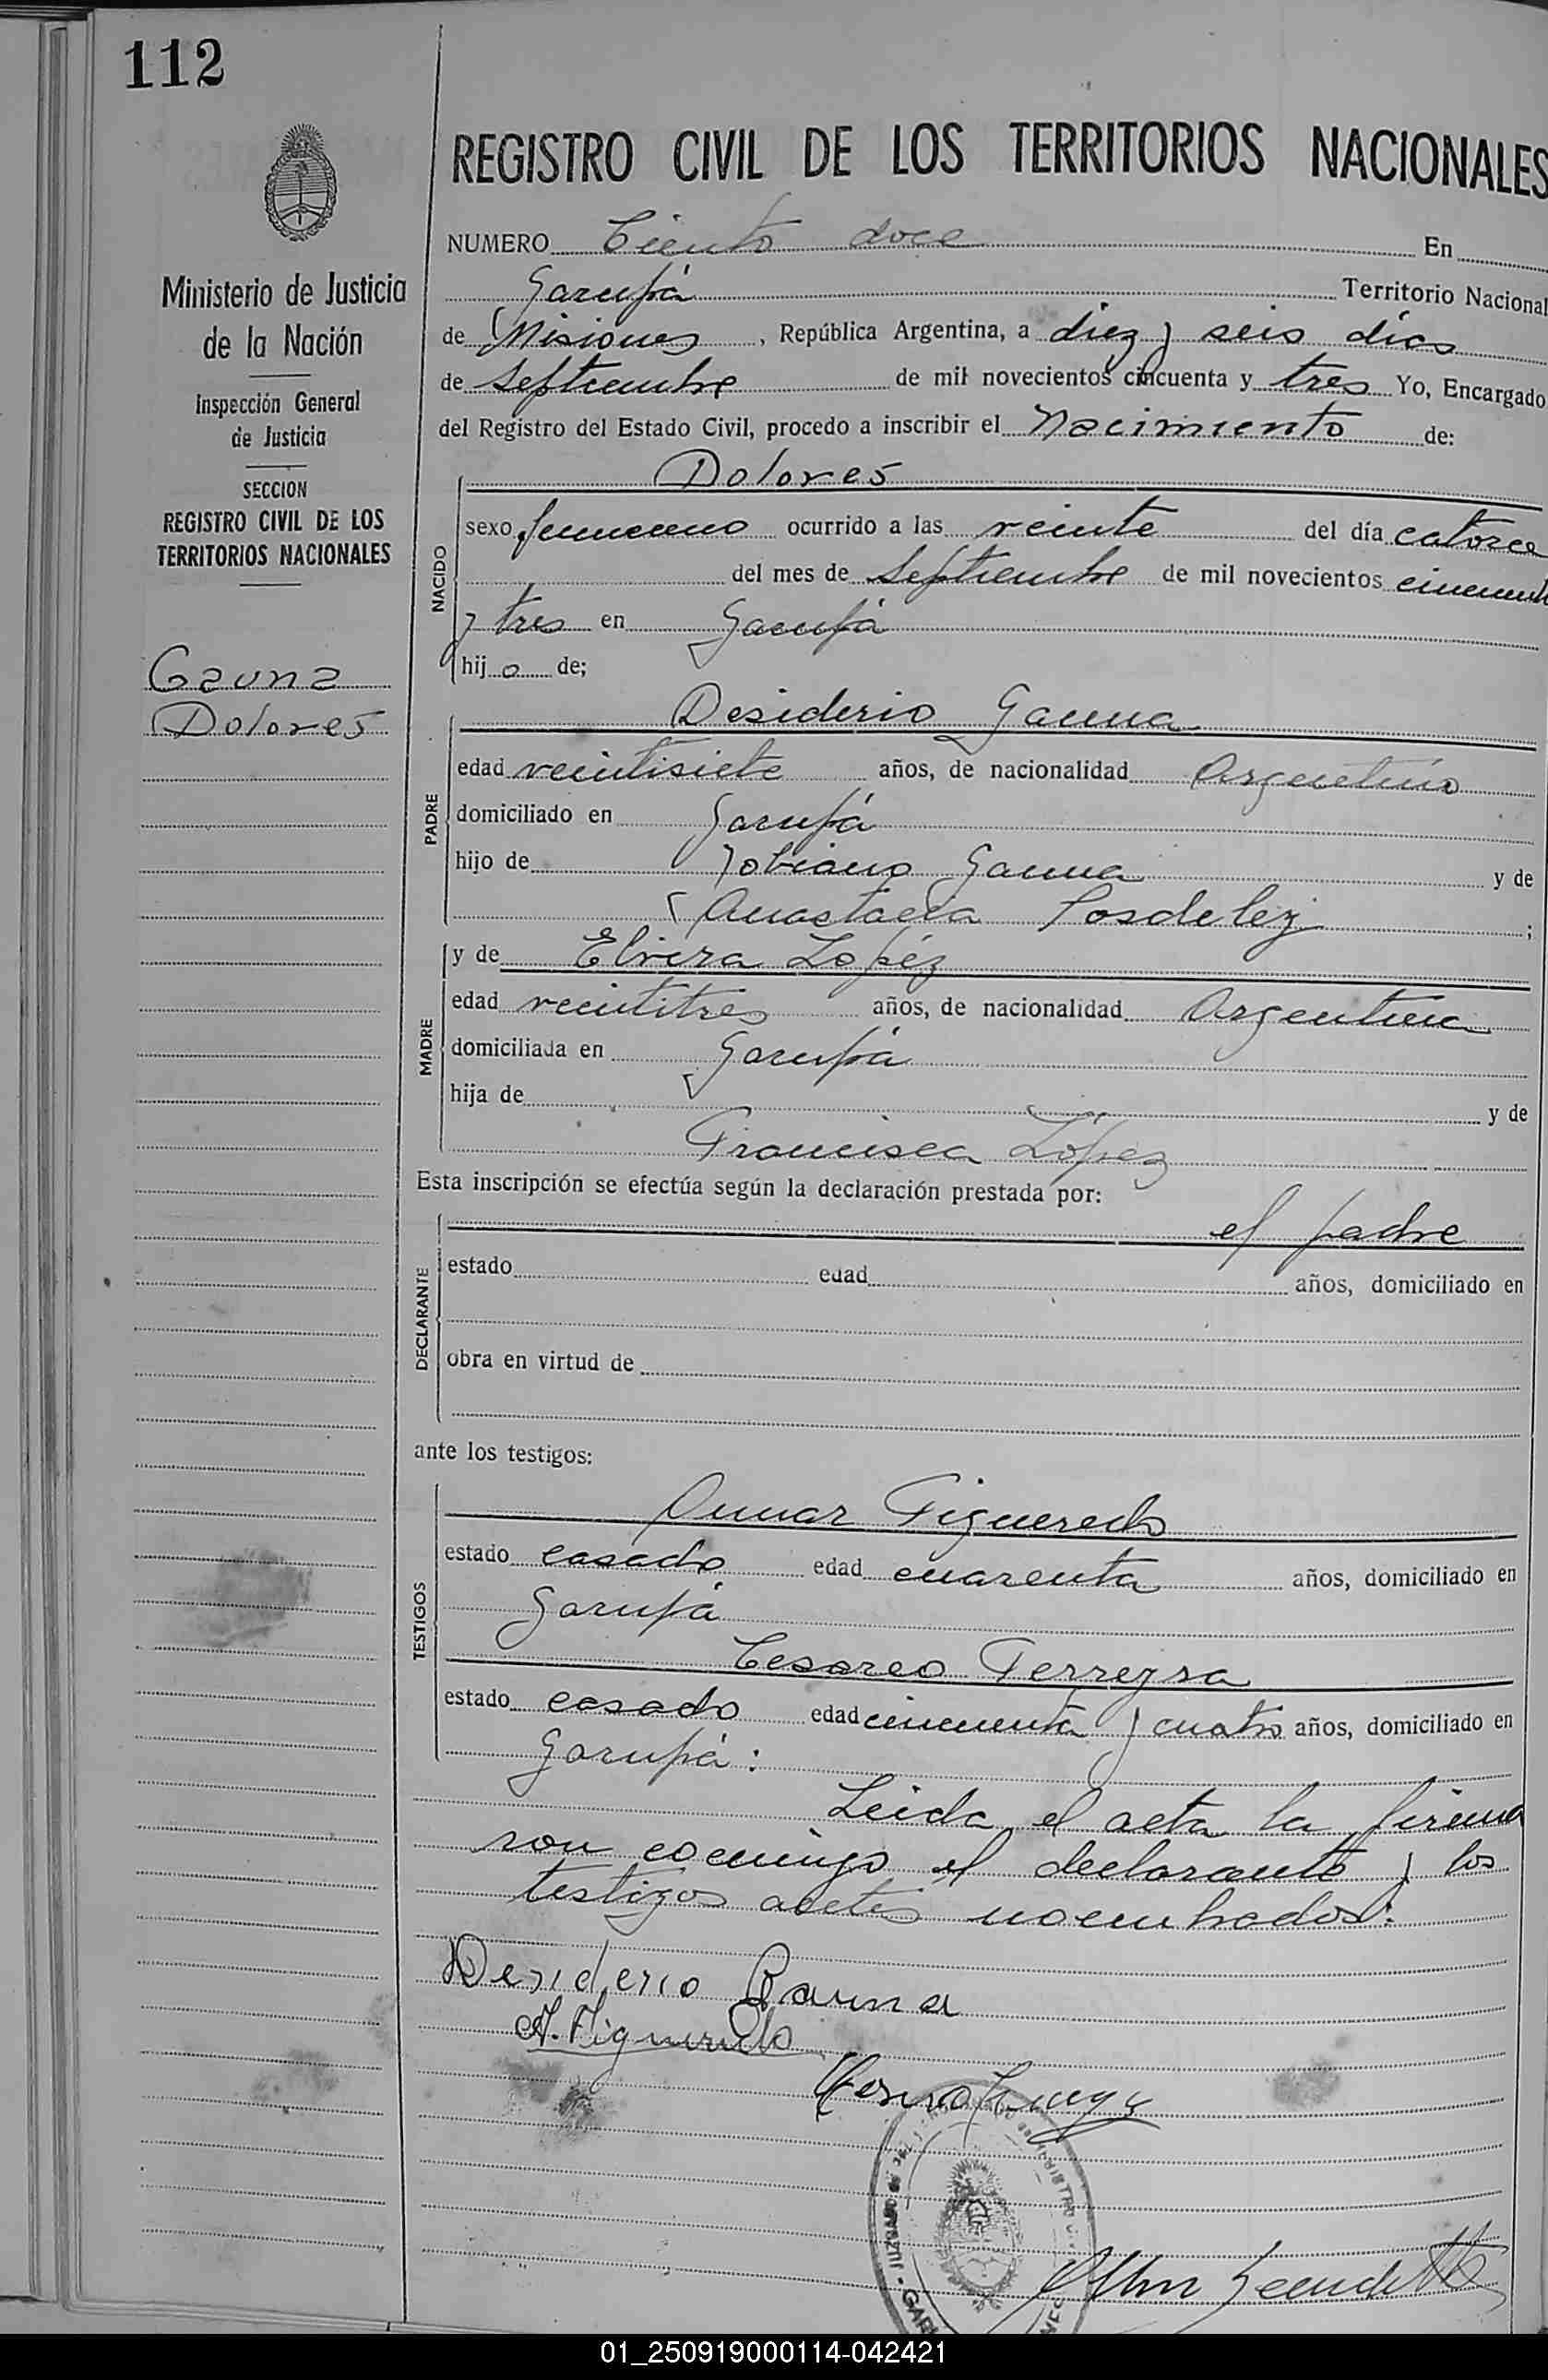 112
REGISTRO CIVIL DE LOS TERRITORIOS NACIONALES
Ministerio de Justicia
de la Nación
Inspección General
de Justicia
SECCION
REGISTRO CIVIL DE LOS
TERRITORIOS NACIONALES
Gauna
Dolores
NUMERO Ciento doce En
Garupá Territorio Nacional
de Misiones, República Argentina, a diez y seis días
de Septiembre de mil novecientos cincuenta y tres Yo, Encargado
del Registro del Estado Civil, procedo a inscribir el Nacimiento de:
NACIDO
Dolores
sexo femenino ocurrido a las veinte del día catorce
del mes de Septiembre de mil novecientos cincuenta
y tres en Garupá
hijo de;
PADRE
Desiderio Gauna
edad veintisiete años, de nacionalidad Argentino
domiciliado en Garupá
hijo de Gauna y de
Anastacia ;
MADRE
y de Elvira Lopéz
edad veintitres años, de nacionalidad Argentina
domiciliada en Garupá
hija de y de
Francisca López
Esta inscripción se efectúa según la declaración prestada por:
DECLARANTE
el padre
estado edad años, domiciliado en
obra en virtud de
ante los testigos:
TESTIGOS
Omar Figueredo
estado casado edad cuarenta años, domiciliado en
Garupá
Cesareo Ferreyra
estado casado edad cincuenta y cuatro años, domiciliado en
Garupá:
Leida el acta la firma
ron conmigo el declarante y los
testigos antes nombrados:
Desiderio Gauna
Figueredo
JUZGADO
01_250919000114-042421